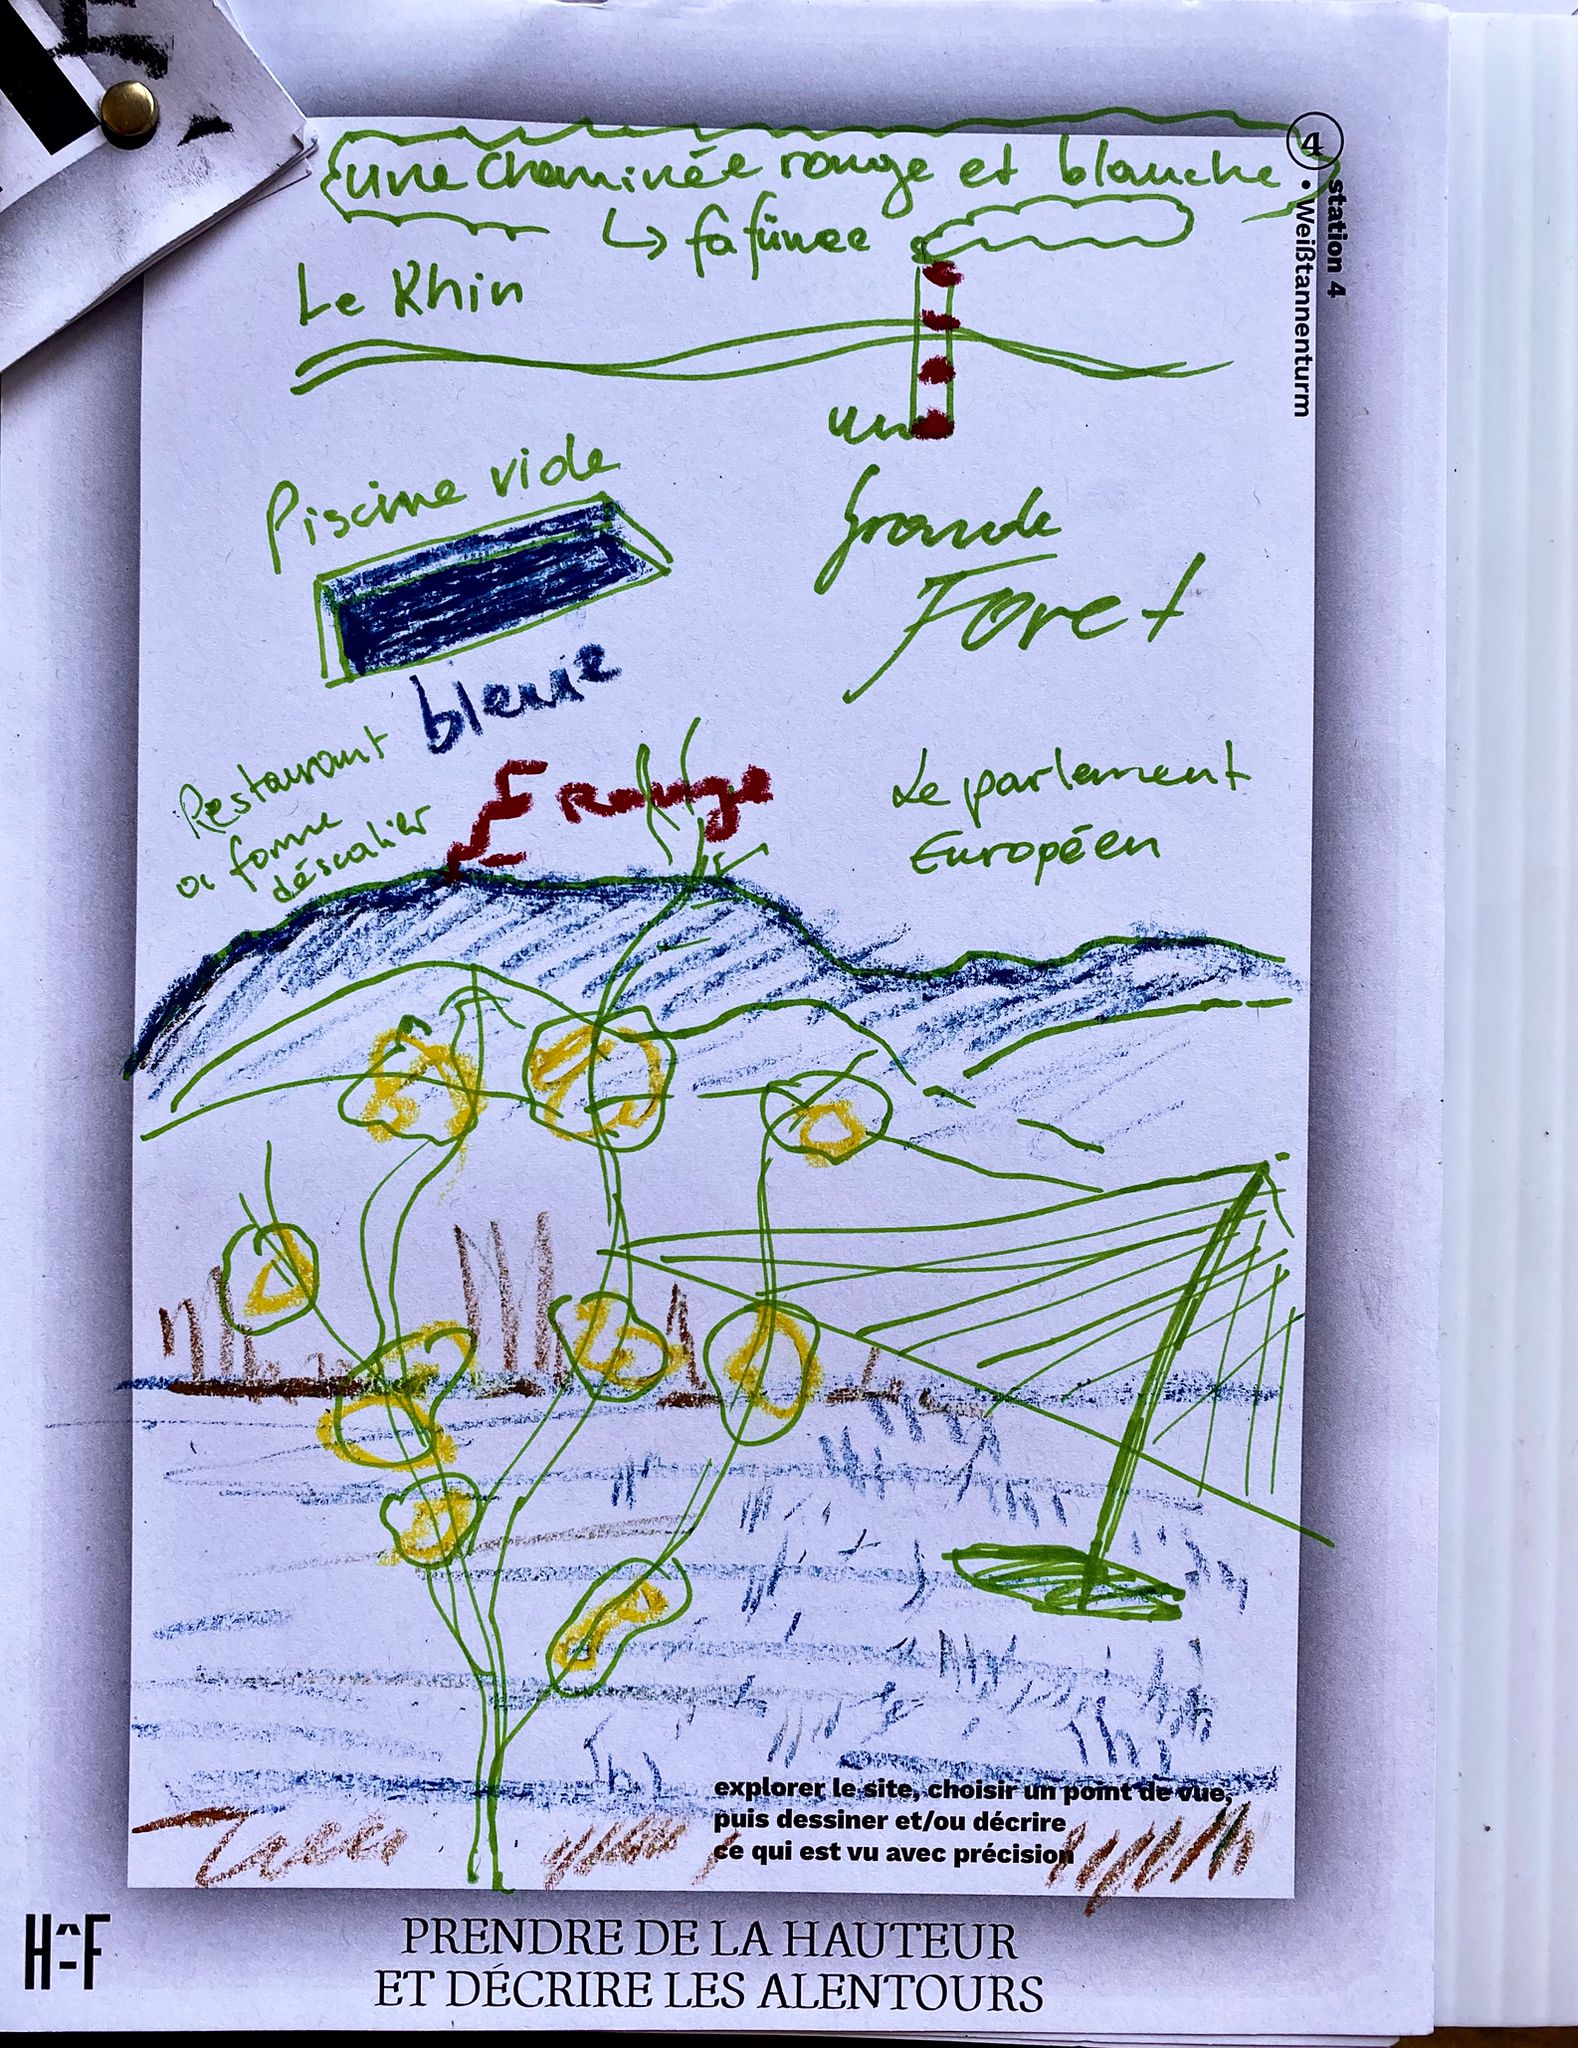 4
station 4
• Weißtannenturm
une cheminée rouge et blanche
Le Rhin
un
Grande
Foret
Piscine vide
Restaurant
forme
déscalier
Rouge
Le parlement
Européen
explorer le site, choisir un point de vue,
puis dessiner et/ou décrire
ce qui est vu avec précision
HF
PRENDRE DE LA HAUTEUR
ET DÉCRIRE LES ALENTOURS